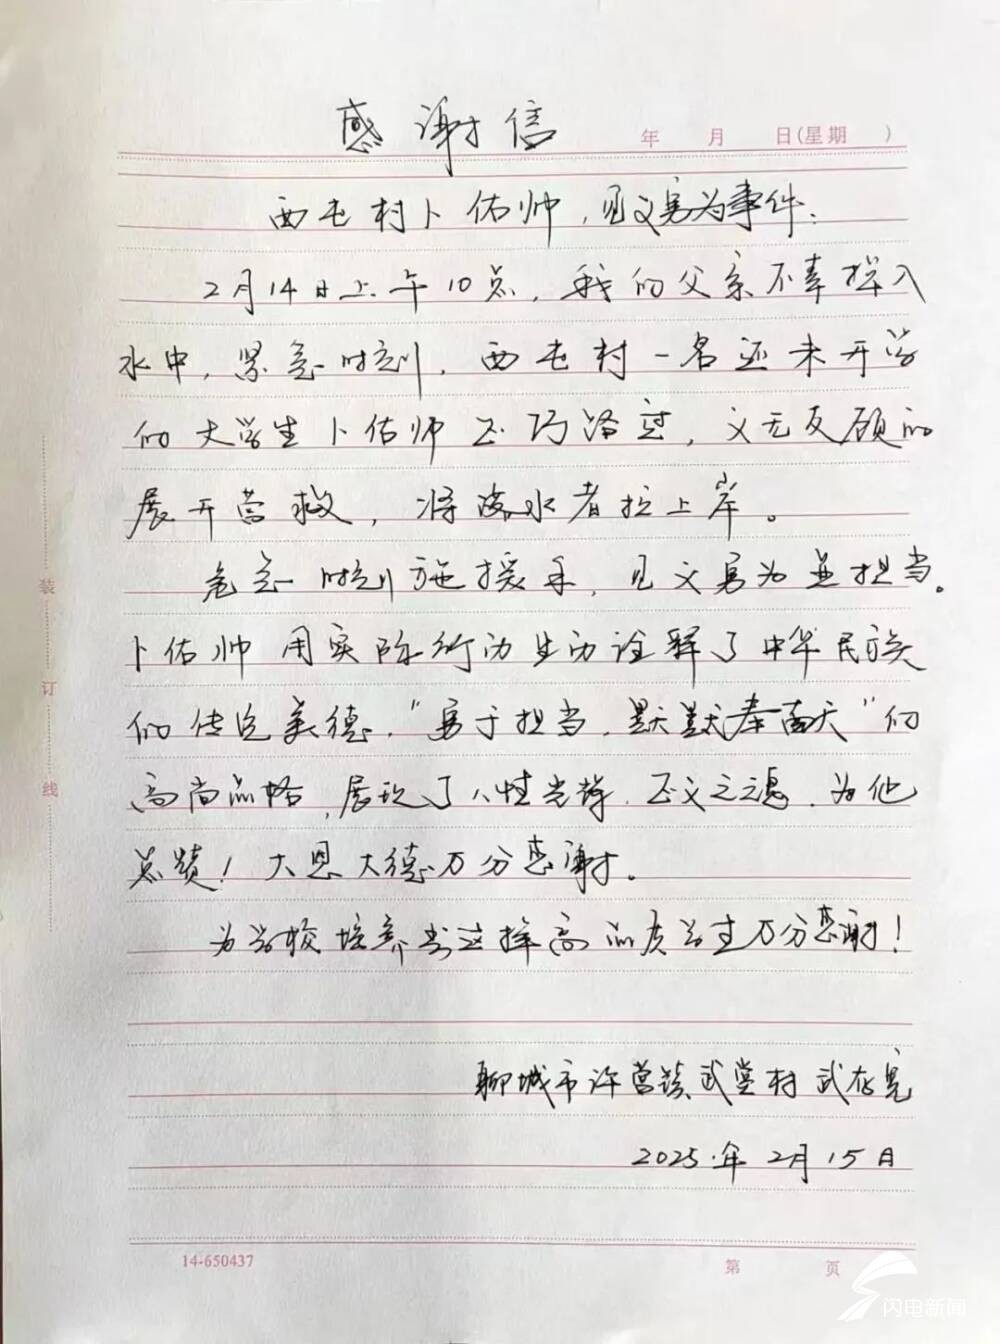 感谢信
年 月 日(星期 )
西屯村卜佑帅，见义勇为事件：
2月14日上午10点，我的父亲不幸掉入
水中，紧急时刻，西屯村一名还未开学
的大学生卜佑帅正巧路过，义无反顾的
展开营救，将落水者拉上岸。
危急时刻施援手，见义勇为显担当。
卜佑帅用实际行动生动诠释了中华民族
的传统美德，“勇于担当，默默奉献”的
高尚品格，展现了人性光辉，正义之魂，为他
点赞！大恩大德万分感谢。
为学校培养出这样高品质学生万分感谢！
聊城市许营镇武堂村 武存亮
2025.年2月15日
装
订
线
14-650437
第 页
闪电新闻